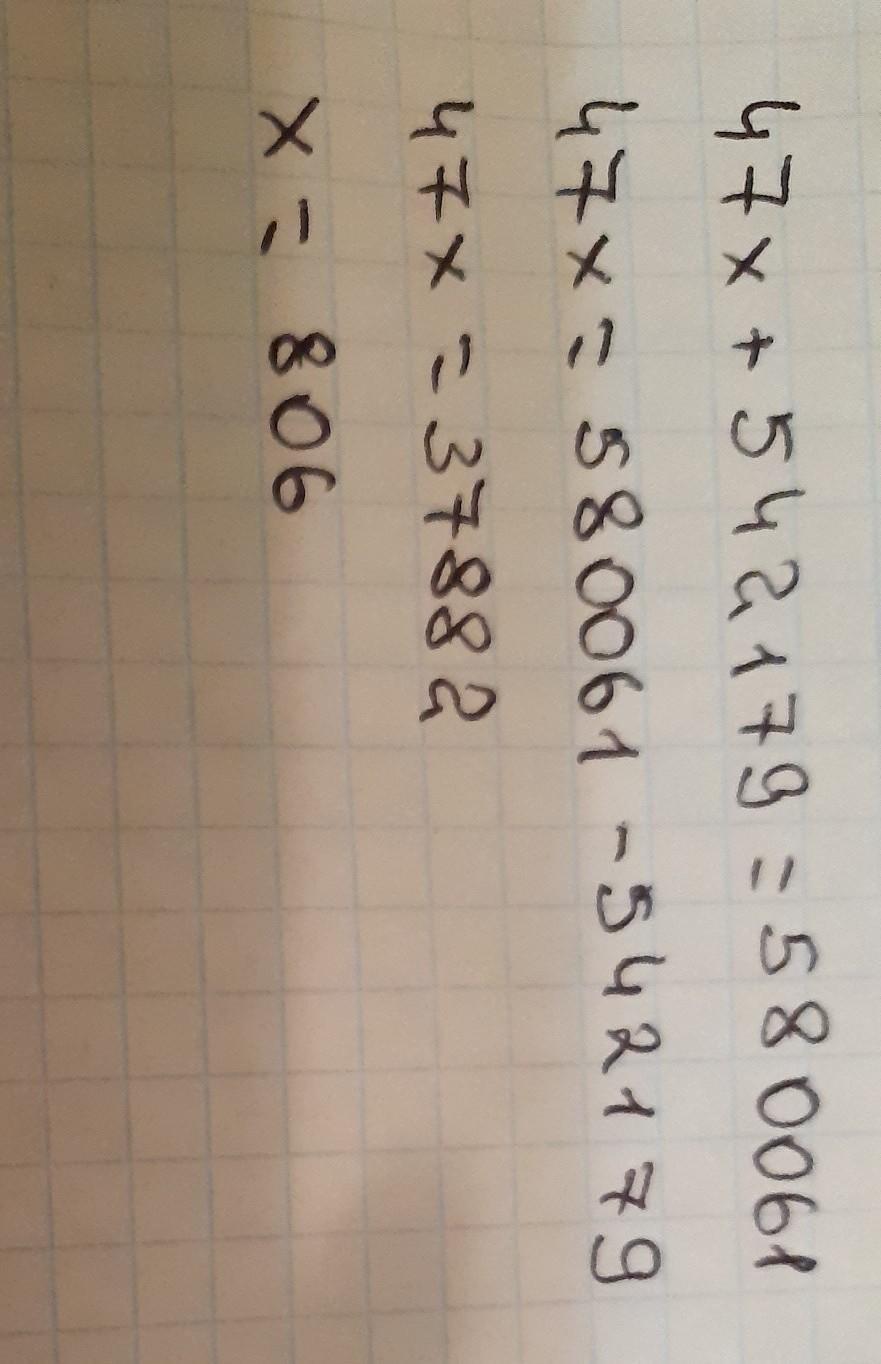 47x + 542179 = 580061
47x = 580061 - 542179
47x = 37882
x = 806